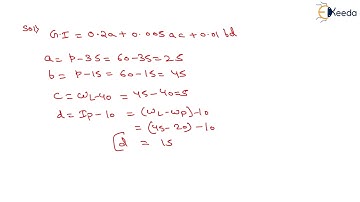 Ekeeda
Sol:)
G.I = 0.2a + 0.005 ac + 0.01 bd
a = P-35 = 60-35 = 25
b = P-15 = 60-15 = 45
c = WL-40 = 45-40=5
d = Ip-10 = (WL-WP)-10
= (45-20) -10
d = 15